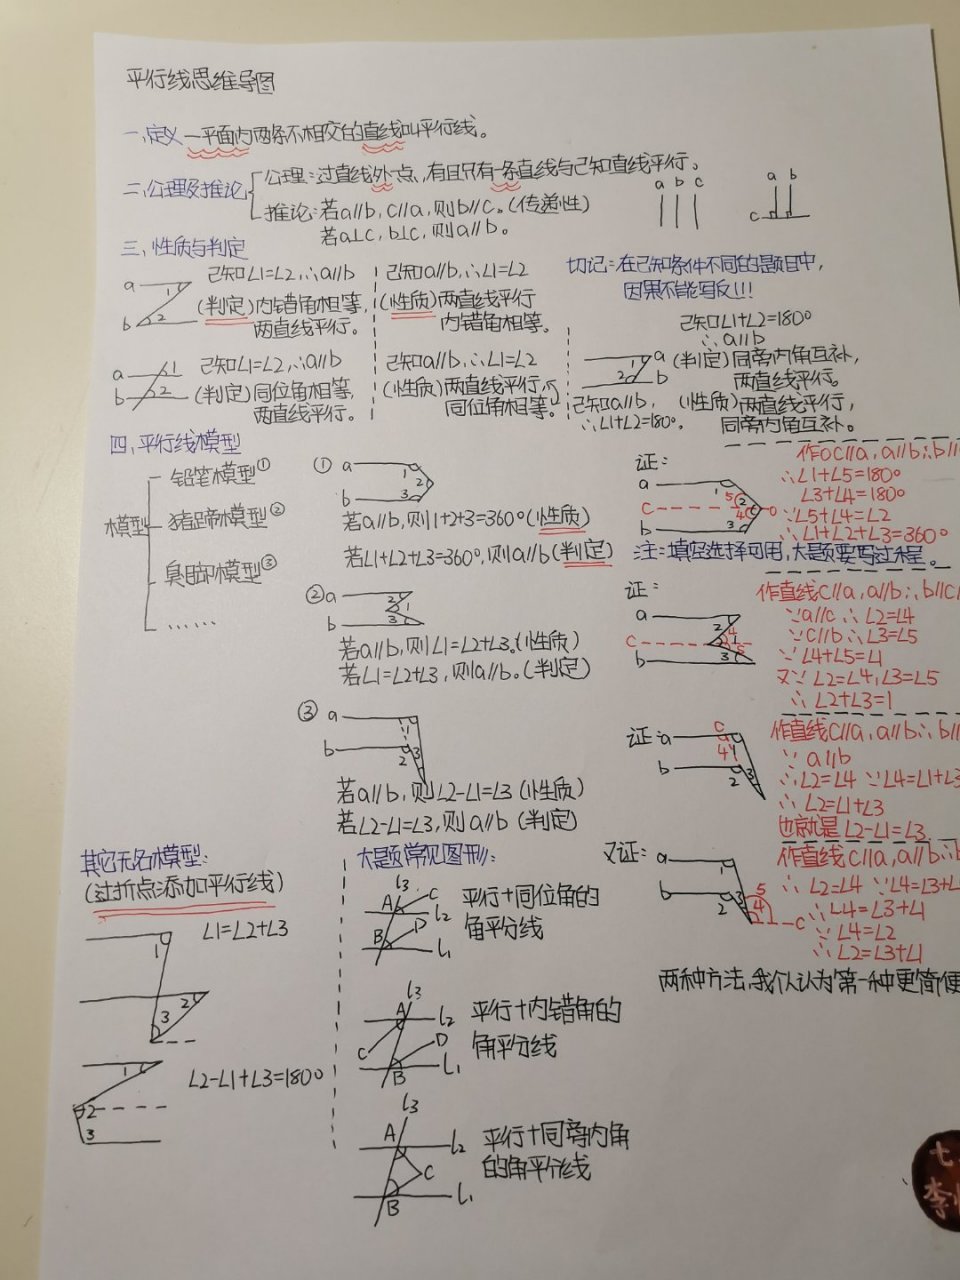 平行线思维导图
一、定义 一平面内两条不相交的直线叫平行线。
二、公理及推论
公理:过直线外一点,有且只有一条直线与已知直线平行。
推论:若a∥b,c∥a,则b∥c。(传递性)
若a⊥c,b⊥c,则a∥b。
a b c
a b
c
三、性质与判定
a
b
1
2
已知∠1=∠2,∴a∥b
(判定)内错角相等,
两直线平行。
已知a∥b,∴∠1=∠2
(性质)两直线平行
内错角相等。
切记:在已知条件不同的题目中,
因果不能写反!!!
a
b
1
2
已知∠1=∠2,∴a∥b
(判定)同位角相等,
两直线平行。
已知a∥b,∴∠1=∠2
(性质)两直线平行,
同位角相等。
已知∠1+∠2=180°
∴a∥b
(判定)同旁内角互补,
两直线平行。
a
b
1
2
已知a∥b,
∴∠1+∠2=180°。
(性质)两直线平行,
同旁内角互补。
四、平行线模型
模型
铅笔模型①
猪蹄模型②
臭脚模型③
……
① a
b
1
2
3
若a∥b,则1+2+3=360°(性质)
若∠1+∠2+∠3=360°,则a∥b(判定)
证:
a
c
b
1
5
2
4
3
∴∠1+∠5=180°
∠3+∠4=180°
∵∠5+∠4=∠2
∴∠1+∠2+∠3=360°
注:填空选择可用,大题要写过程。
② a
b
2
1
3
若a∥b,则∠1=∠2+∠3。(性质)
若∠1=∠2+∠3,则a∥b。(判定)
证:
a
c
b
2
4
1
5
3
作直线c∥a,a∥b∴b∥c
∵a∥c∴∠2=∠4
∵c∥b∴∠3=∠5
∵∠4+∠5=∠1
又∵∠2=∠4,∠3=∠5
∴∠2+∠3=1
③ a
b
1
2
3
若a∥b,则∠2-∠1=∠3(性质)
若∠2-∠1=∠3,则a∥b(判定)
证:
a
b
c
4
1
2
3
作直线c∥a,a∥b∴b∥
∵a∥b
∴∠2=∠4 ∵∠4=∠1+∠3
∴∠2=∠1+∠3
也就是∠2-∠1=∠3
又证:
a
b
1
2
3
5
4
c
作直线c∥a,a∥b∴b
∴∠2=∠4 ∵∠4=∠3+∠
∴∠4=∠3+∠1
∵∠4=∠2
∴∠2=∠3+∠1
两种方法,我个人认为第一种更简便
其它无名模型:
(过折点添加平行线)
1
2
3
∠1=∠2+∠3
1
2
3
∠2-∠1+∠3=180°
大题常见图形:
l3
A
C
l2
B
D
l1
平行+同位角的
角平分线
l3
A
l2
C
D
B
l1
平行+内错角的
角平分线
l3
A
l2
C
B
l1
平行+同旁内角
的角平分线
七
李